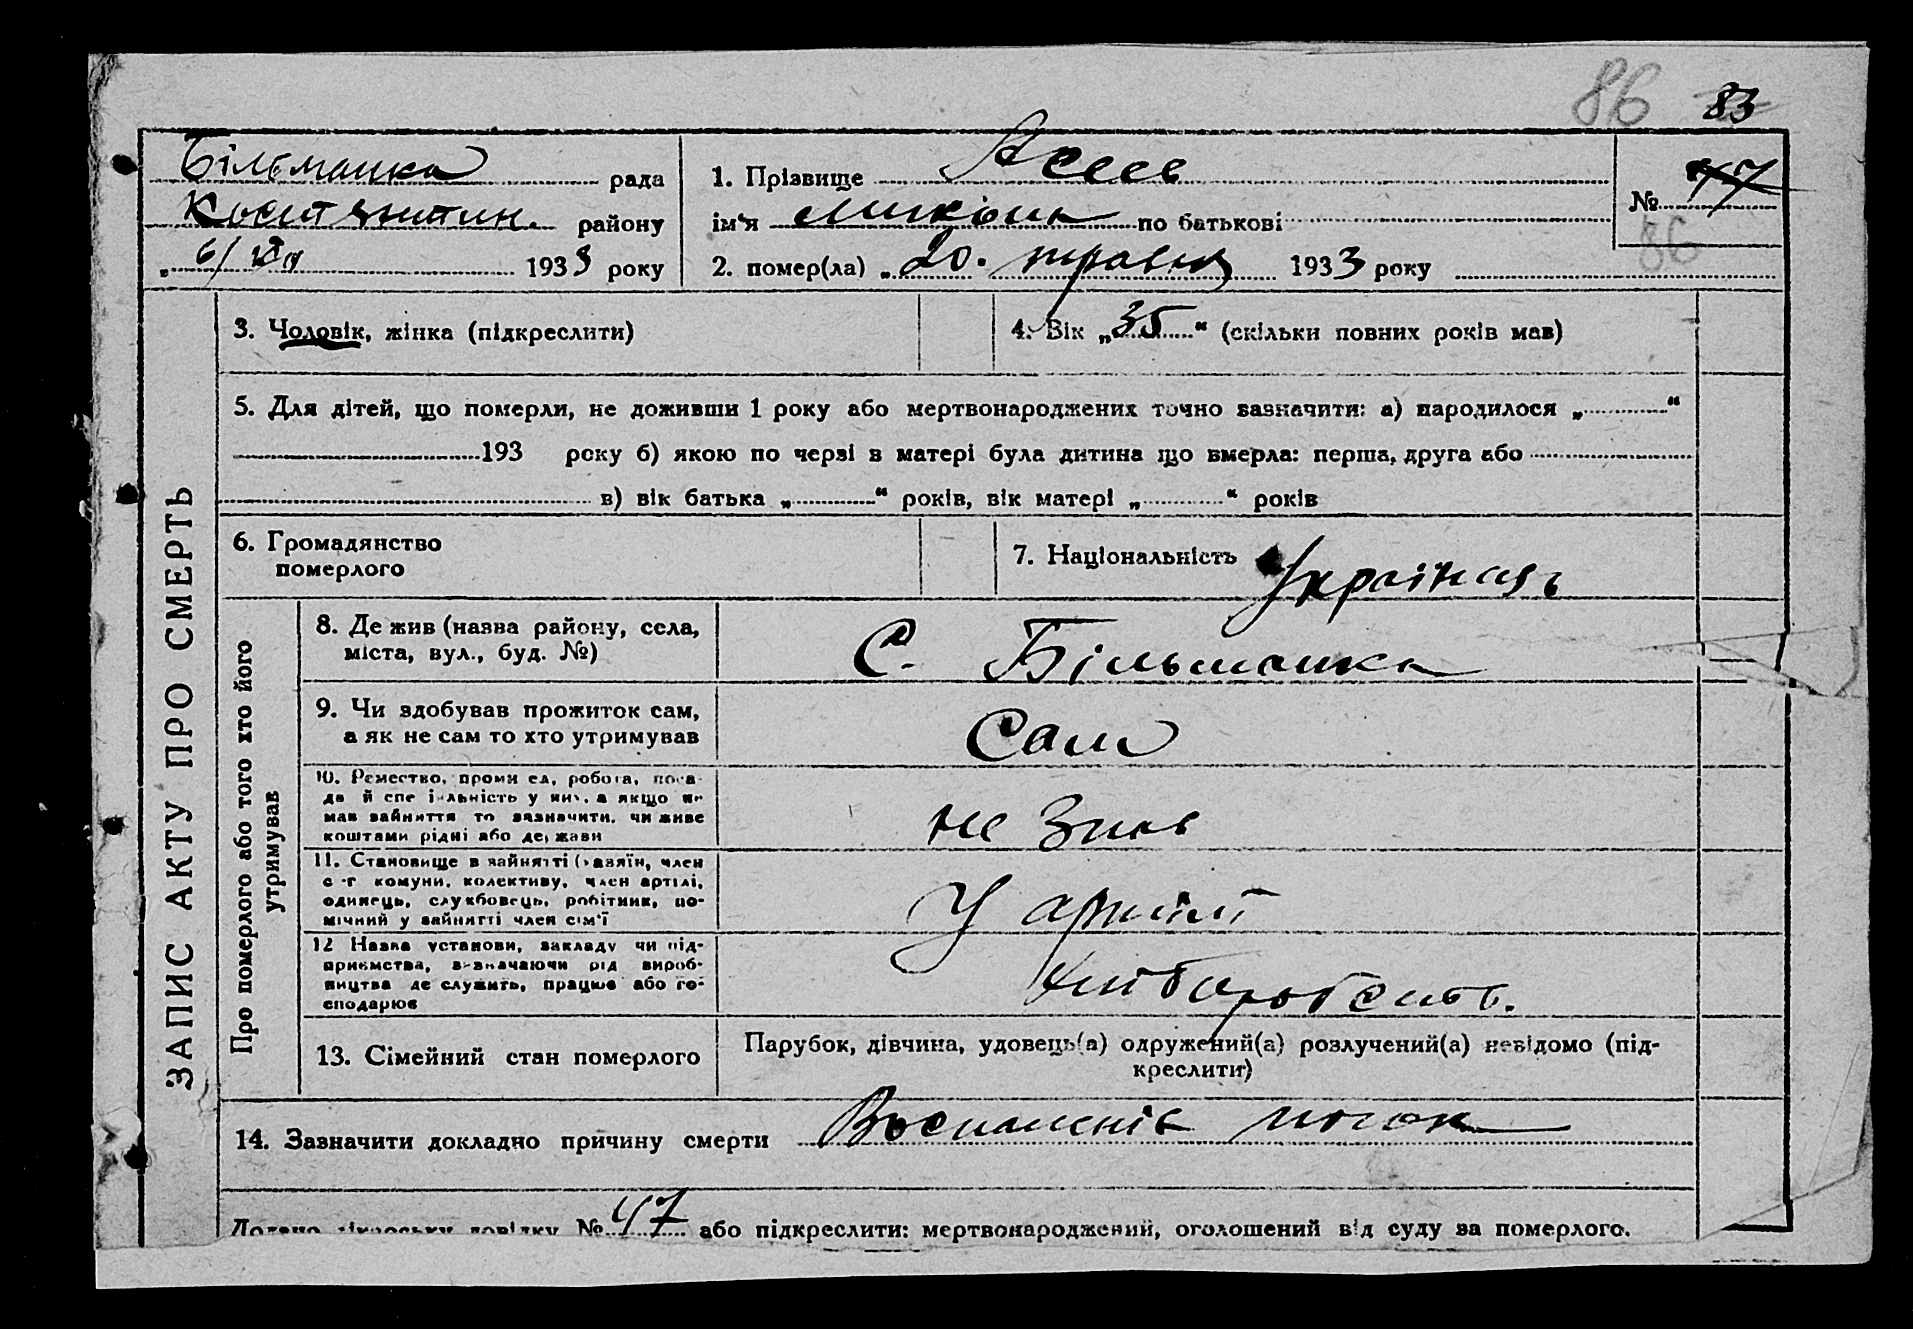 86 83
Більманка рада
району
6/ 1933 року
1. Прізвище Асеев
ім'я Микола по батькові
2. помер(ла) „ 20. травня 1933 року
№ 47
86
3. Чоловік, жінка (підкреслити)
4. Вік „ 35 “ (скільки повних років мав)
5. Для дітей, що померли, не доживши 1 року або мертвонароджених точно зазначити: а) народилося „ “
193 року б) якою по черзі в матері була дитина що вмерла: перша, друга або
в) вік батька „ “ років, вік матері „ “ років
6. Громадянство
померлого
7. Національність Українець
ЗАПИС АКТУ ПРО СМЕРТЬ
Про померлого або того хто його
утримував
8. Де жив (назва району, села,
міста, вул., буд. №)
С. Більманка
9. Чи здобував прожиток сам,
а як не сам то хто утримував
Сам
10. Ремество, промисел, робота, поса-
да й спеціяльність у них, а якщо не
мав зайняття то зазначити, чи живе
коштами рідні або держави
не знав
11. Становище в зайнятті (хазяїн, член
с-г комуни, колективу, член артілі,
одинець, службовець, робітник, по-
мічний у зайнятті член сім'ї
У артілі
12 Назва установи, закладу чи під-
приємства, визначаючи рід вироб-
ництва де служить, працює або го-
сподарює
13. Сімейний стан померлого
Парубок, дівчина, удовець(а) одружений(а) розлучений(а) невідомо (під-
креслити)
14. Зазначити докладно причину смерти
Додано лікарську довідку № 47 або підкреслити: мертвонароджений, оголошений від суду за померлого.